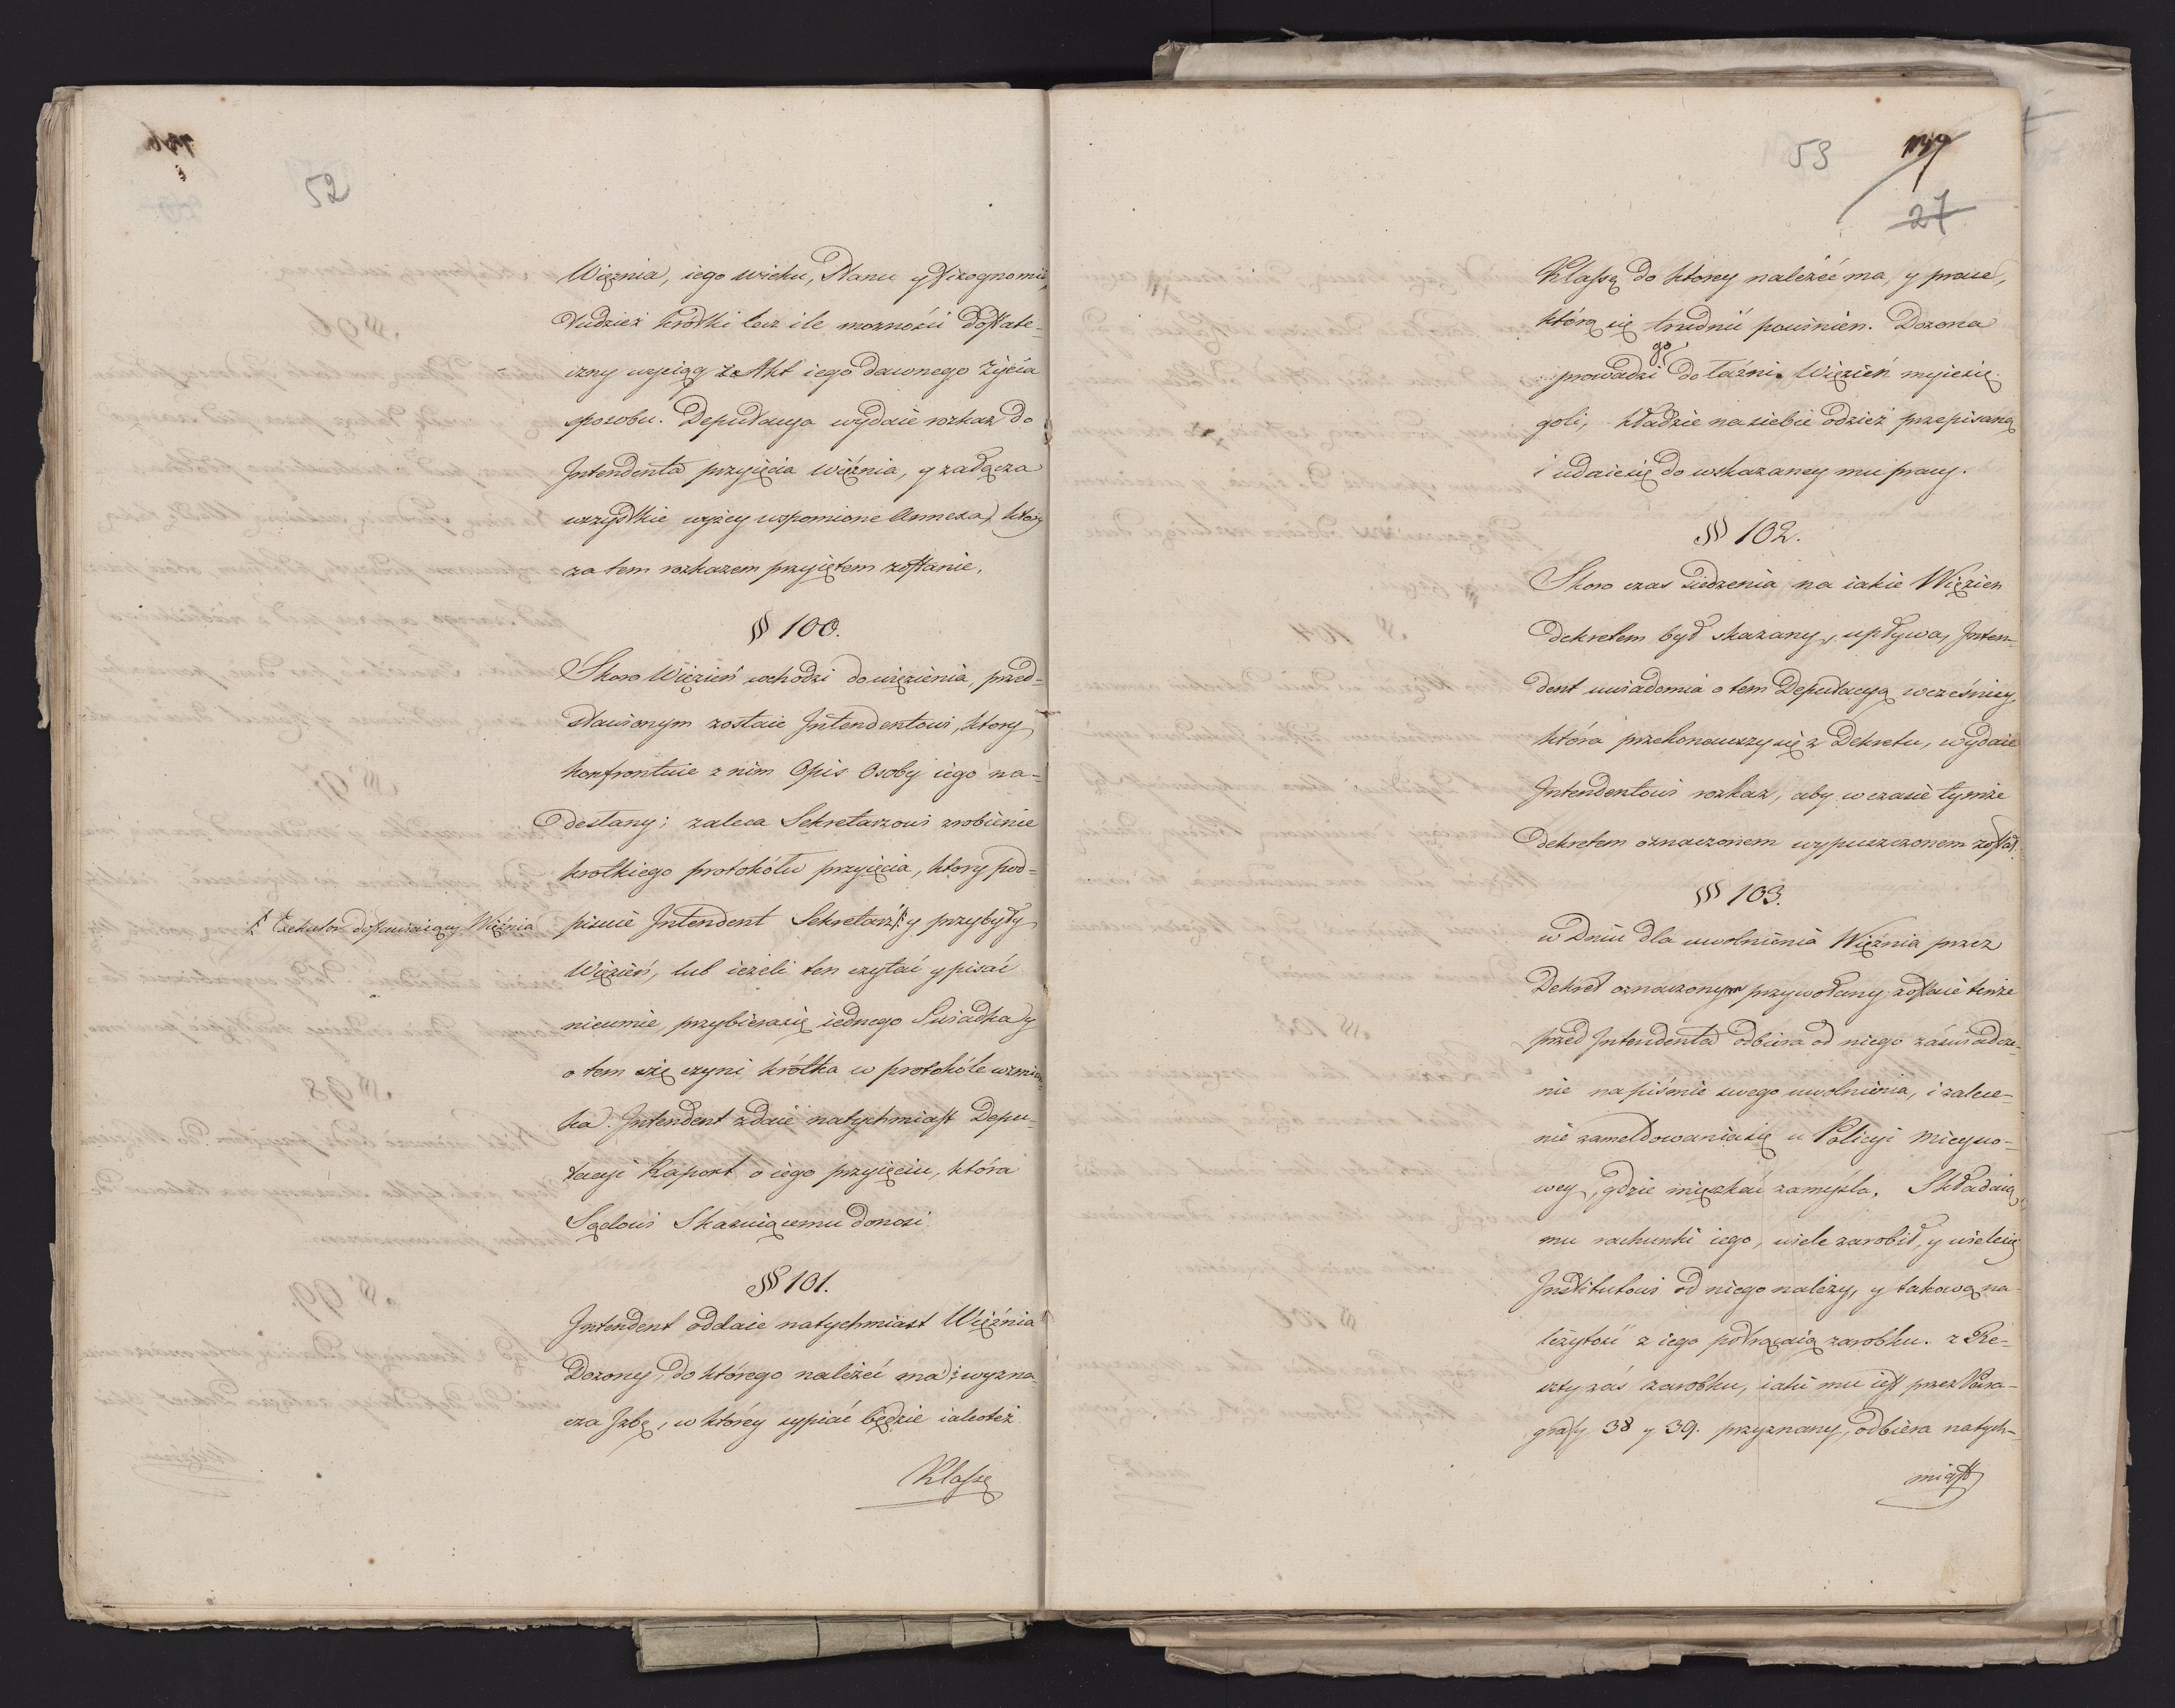 52
Więznia, iego wieku, Stanu y Fizognomii,
tudzież krótki lecz ile moznosci dostate-
czny wyciąg z Akt iego dawnego życia
sposobu. Deputacya wydaie rozkaz do
Intendenta przyięcia więźnia, y załącza
wszystkie wyżey wspomione Annexa, który
za tem rozkazem przyiętem zostanie.
§ 100.
Skoro Więzień wchodzi do więzienia, przed-
stawionym zostaie Intendentowi, ktory
konfrontuie z nim Opis Osoby iego na-
desłany; zaleca Sekretarzowi zrobienie
krotkiego protokółu przyięcia, ktory pod-
pisuie Intendent Sekretarz y przybyły
Exekutor dostawiaiący Więźnia
Więzień, lub ieżeli ten czytać y pisać
nieumie, przybierasię iednego Swiadka y
o tem się czyni krótka w protokóle wzmian-
ka. Intendent zdaie natychmiast Depu-
tacyi Raport o iego przyięciu, która
Sądowi Skazuiącemu donosi
§ 101.
Intendent oddaie natychmiast Więźnia
Dozorcy, do którego należeć ma i wyzna-
cza Izbę, w którey sypiać będzie iakoteż
Klassę
53
139
27
Klassę do ktorey należeć ma, y prace,
którą się trudnić powinien. Dozorca
prowadzi go do Łaźni. Więzień myiesię
goli, kładzie na siebie odzież przepisaną
i udaiesię do wskazaney mu pracy.
§ 102.
Skoro czas siedzenia na iakie Więzien
dekretem był skazany, upływa, Inten-
dent uwiadomia o tem Deputacyą wcześniey,
która przekonawszy się z Dekretu, wydaie
Intendentowi rozkaz, aby w czasie tymże
dekretem oznaczonem wypuszczonem został.
§ 103.
w Dniu dla uwolnienia Więźnia przez
Dekret oznaczonym przywołany zostaie tenże
przed Intendenta odbiera od niego zaświadcze-
nie na piśmie swego uwolnienia, i zalece-
nie zameldowaniasię u Policyi mieysco-
wey, gdzie mięszkać zamyśla. Składaią
mu rachunki iego, wiele zarobił, y wiele się
Institutowi od niego należy, y takową na-
leżytość z iego potrącaią zarobku. z Re-
szty zaś zarobku, iaki mu iest przez Para-
grafy 38 y 39. przyznany, odbiera natych-
miast